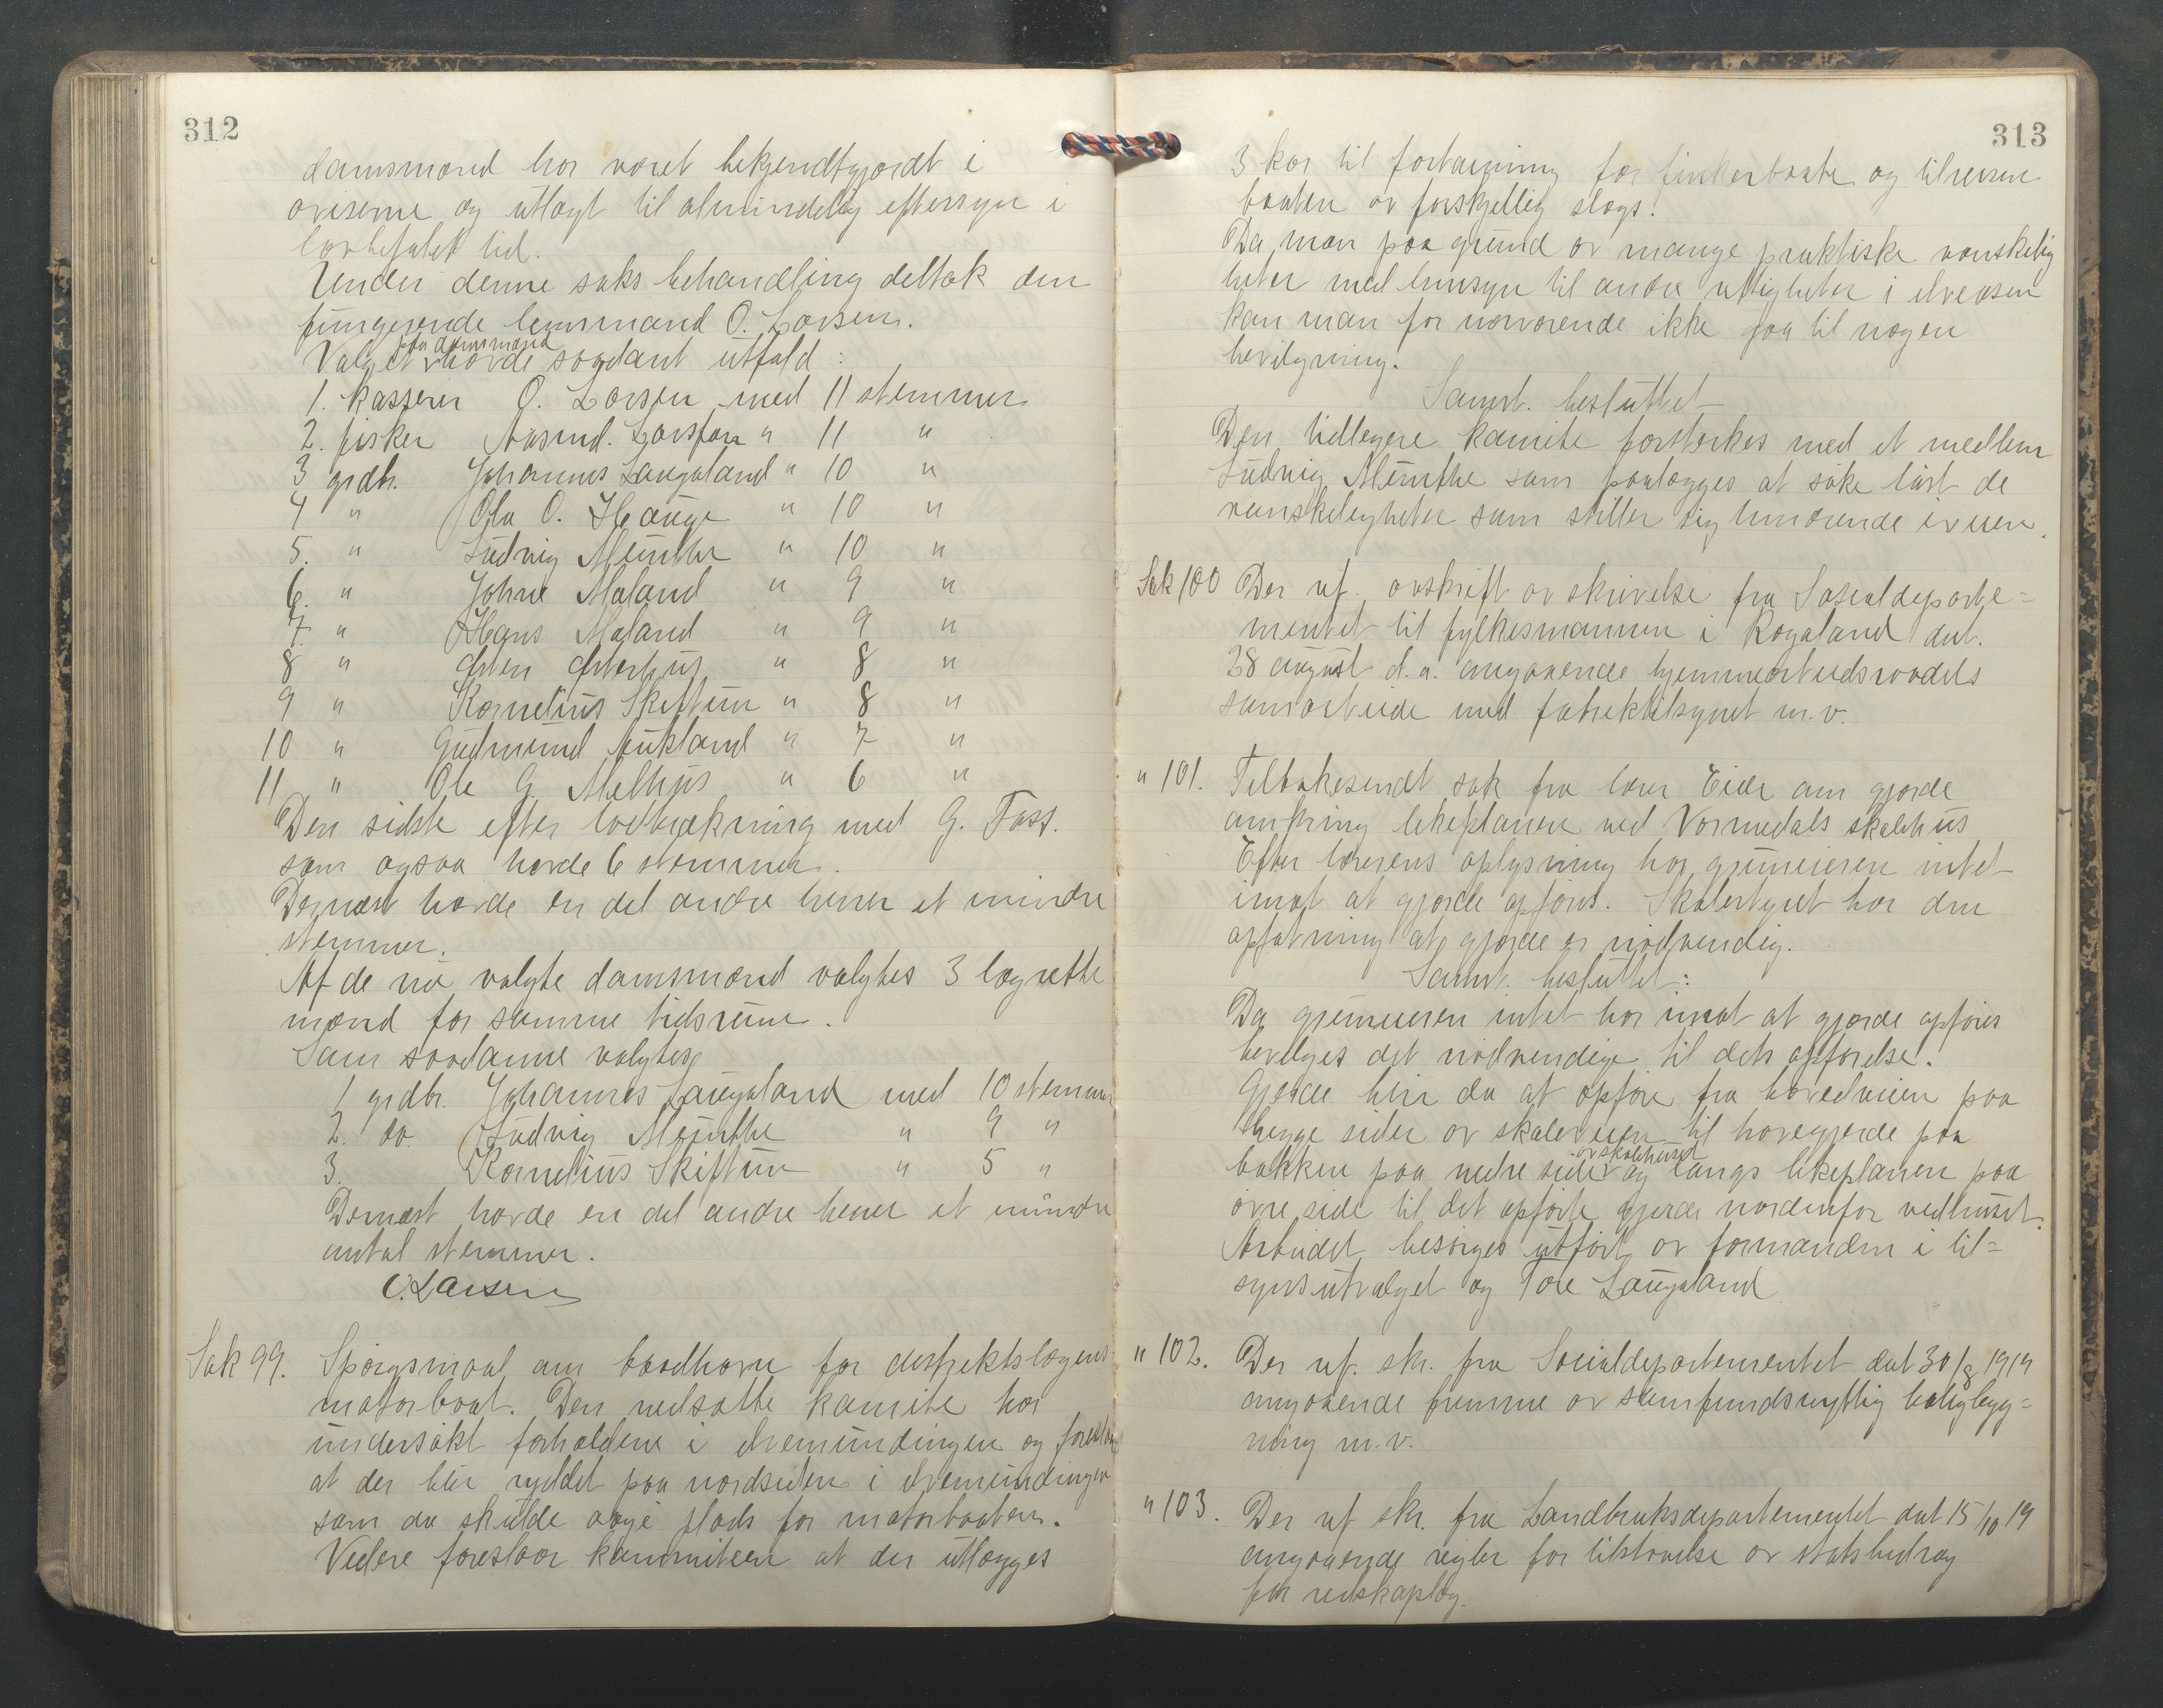 312
domsmænd har været bekjendtgjordt i
aviserne og utlagt til almindelig eftersyn i
lovbefalet tid.
Under denne saks behandling deltok den
fungerende lensmand O. Larsen.
paa domsmænd
Valget havde saadant utfald:
1. kasserer O. Larsen med 11 stemmer
2. fisker Aasmd. Larsson " 11 "
3 grdbr. Johannes Laugaland " 10 "
4 " Ola O. Hauge " 10 "
5. " Ludvig Münthe " 10 "
6. " Johne Maland " 9 "
7. " Hans Maland " 9 "
8 " " 8 "
9 " Kornelius Skiftun " 8 "
10 " Gudmund Aukland " 7 "
11 " Ole G. Melhus " 6 "
Den sidste efter lodtrækning med G. Foss.
som ogsaa havde 6 stemmer.
Dernæst havde en del andre hver et mindre
stemmer.
Af de nu valgte domsmænd valgtes 3 lagrette
mænd for samme tidsrum.
Som saadanne valgtes
1 grdbr. Johannes Laugaland med 10 stemmer
2. do. Ludvig Münthe " 9 "
3. Kornelius Skiftun " 5 "
Dernæst havde en del andre hver et mindre
antal stemmer.
O. Larsen
Sak 99. Spørgsmaal om baadhavn for distriktslægens
motorbaat. Den nedsatte komite har
undersøkt forholdene i elvemundingen og foreslaar
at der blir ryddet paa nordsiden i elvemundingen
som da skulde avgi plads for motorbaaten.
Videre foreslaar kommiteen at der utlægges
313
3 kar til fortøigning for fiskerbaate og tilreisen
baaten av forskjellig slags.
Da man paa grund av mange praktiske vanskelig
heter med hensyn til andre rettigheter i elveosen
kan man for nærværende ikke gaa til nogen
bevilgning.
Samst. besluttet
Den tidlegere komite forsterkes med et medlem
Ludvig Münthe som paalægges at søke løst de
vanskeligheter som stiller sig hindrende iveien.
Sak 100 Der ref. avskrift av skrivelse fra Sosialdeparte-
mentet til fylkesmannen i Rogaland dat.
28 august d. a. angaaende hjemmearbeidsraadets
samarbeide med fabriktilsynet m.v.
" 101. Tilbakesendt sak fra lærer Eide om gjærde
omkring lekeplanen ved Vormedals skolehus
Efter lærerens oplysning har gruneieren intet
imot at gjærde opføres. Skolestyret har den
opfatning at gjærde er nødvendig.
Samst. besluttet:
Da gruneieren intet har imot at gjærde opføres
bevilges det nødvendige til dets opførelse.
Gjærde blir da at opføre fra hovedveien paa
begge sider av skoleveien til havegjærde paa
av skolehuset
bakken paa nedre side og langs lekeplanen paa
øvre side til det opførte gjerde nordenfor vedhuset.
Arbeidet besørges utført av formanden i til-
synsutvalget og Tore Laugaland
" 102. Der ref. skr. fra Socialdepartementet dat 30/8 1919
angaaende fremme av samfundsnyttig boligbyg-
ning m.v.
" 103. Der ref skr. fra Landbruksdepartementet dat 15/10 19
angaaende regler for tilstaaelse av statsbidrag
for redskapslag.